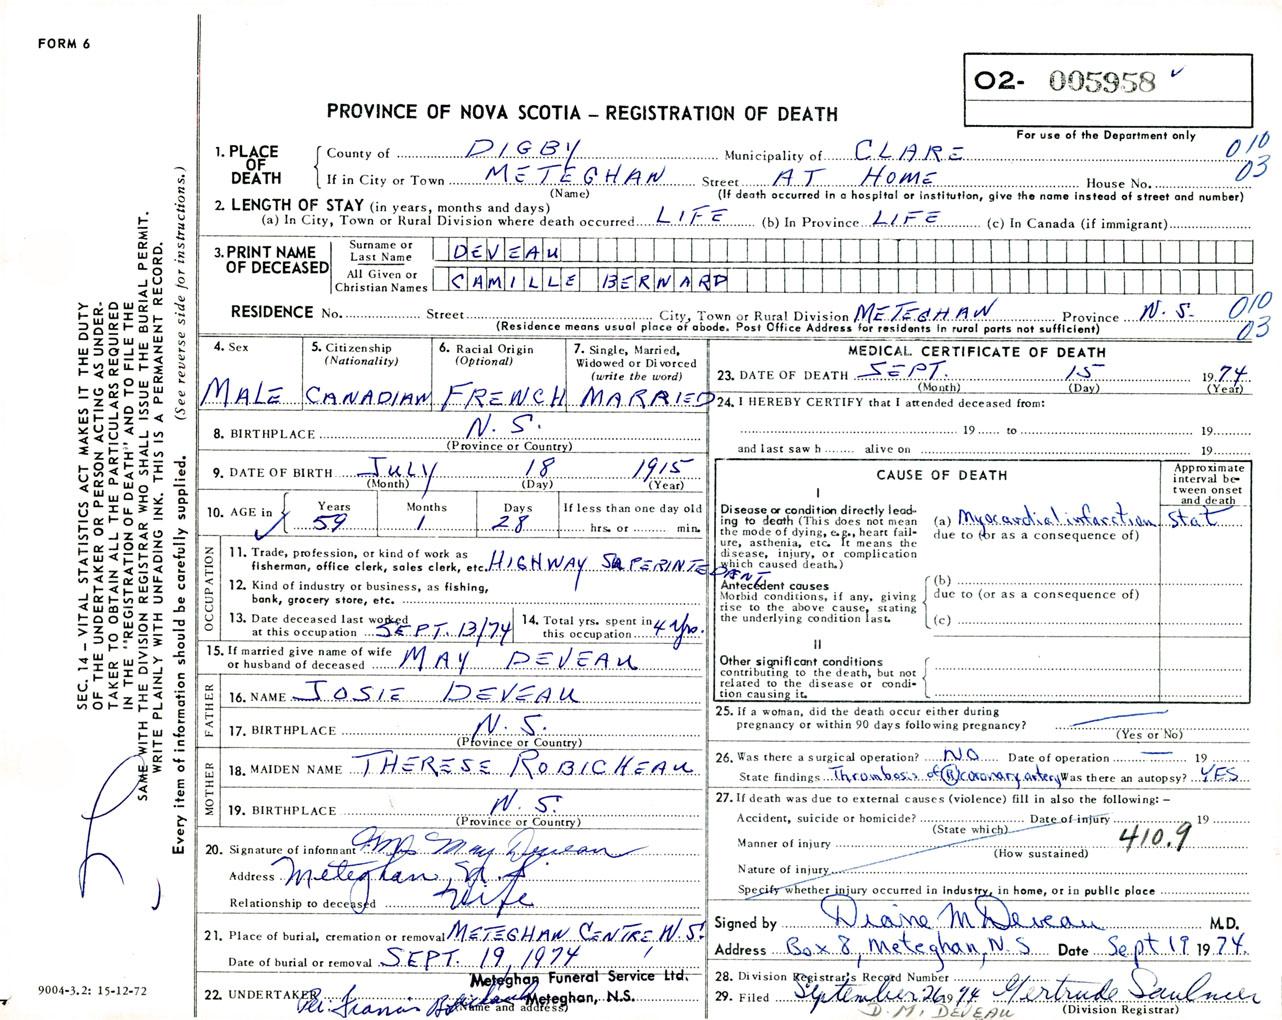 FORM 6
O2- 005958
PROVINCE OF NOVA SCOTIA – REGISTRATION OF DEATH
For use of the Department only
1. PLACE OF DEATH
County of DIGBY Municipality of CLARE 010
If in City or Town METEGHAN Street AT HOME House No. 03
(Name) (If death occurred in a hospital or institution, give the name instead of street and number)
2. LENGTH OF STAY (in years, months and days)
(a) In City, Town or Rural Division where death occurred LIFE (b) In Province LIFE (c) In Canada (if immigrant)
3. PRINT NAME OF DECEASED
Surname or Last Name DEVEAU
All Given or Christian Names CAMILLE BERNARD
RESIDENCE No. Street City, Town or Rural Division METEGHAN Province N.S. 010
(Residence means usual place of abode. Post Office Address for residents in rural parts not sufficient) 03
4. Sex
MALE
5. Citizenship
(Nationality)
CANADIAN
6. Racial Origin
(Optional)
FRENCH
7. Single, Married,
Widowed or Divorced
(write the word)
MARRIED
8. BIRTHPLACE N.S.
(Province or Country)
9. DATE OF BIRTH July 18 1915
(Month) (Day) (Year)
10. AGE in
Years Months Days If less than one day old
59 1 28 hrs. or min.
OCCUPATION
11. Trade, profession, or kind of work as
fisherman, office clerk, sales clerk, etc. HIGHWAY SUPERINTEDANT
12. Kind of industry or business, as fishing,
bank, grocery store, etc.
13. Date deceased last worked
at this occupation SEPT. 13/74
14. Total yrs. spent in
this occupation 4 yrs.
15. If married give name of wife
or husband of deceased MAY DEVEAU
FATHER
16. NAME JOSIE DEVEAU
17. BIRTHPLACE N.S.
(Province or Country)
MOTHER
18. MAIDEN NAME THERESE ROBICHEAU
19. BIRTHPLACE N.S.
(Province or Country)
20. Signature of informant Mrs May Deveau
Address Meteghan, N.S.
Relationship to deceased Wife
21. Place of burial, cremation or removal METEGHAN CENTRE, N.S.
Date of burial or removal SEPT. 19, 1974
Meteghan Funeral Service Ltd.
22. UNDERTAKER Per. Francis Meteghan, N.S.
(Name and address)
MEDICAL CERTIFICATE OF DEATH
23. DATE OF DEATH SEPT. 15 1974
(Month) (Day) (Year)
24. I HEREBY CERTIFY that I attended deceased from:
19 to 19
and last saw h alive on 19
CAUSE OF DEATH
Approximate interval between onset and death
I
Disease or condition directly leading to death (This does not mean the mode of dying, e.g., heart failure, asthenia, etc. It means the disease, injury, or complication which caused death.)
(a) Myocardial infarction Stat
due to (or as a consequence of)
Antecedent causes
Morbid conditions, if any, giving rise to the above cause, stating the underlying condition last.
(b)
due to (or as a consequence of)
(c)
II
Other significant conditions
contributing to the death, but not related to the disease or condition causing it.
25. If a woman, did the death occur either during
pregnancy or within 90 days following pregnancy?
(Yes or No)
26. Was there a surgical operation? NO Date of operation — 19
State findings Thrombosis of (R) coronary artery Was there an autopsy? YES
27. If death was due to external causes (violence) fill in also the following: –
Accident, suicide or homicide? Date of injury 19
(State which) 410.9
Manner of injury
(How sustained)
Nature of injury
Specify whether injury occurred in industry, in home, or in public place
Signed by Diane M Deveau M.D.
Address Box 8, Meteghan, N.S. Date Sept 19 1974
28. Division Registrar's Record Number
29. Filed September 26 1974 Gertrude Saulnier
D. M. DEVEAU (Division Registrar)
SEC. 14 – VITAL STATISTICS ACT MAKES IT THE DUTY
OF THE UNDERTAKER OR PERSON ACTING AS UNDER-
TAKER TO OBTAIN ALL THE PARTICULARS REQUIRED
IN THE "REGISTRATION OF DEATH" AND TO FILE THE
SAME WITH THE DIVISION REGISTRAR WHO SHALL ISSUE THE BURIAL PERMIT.
WRITE PLAINLY WITH UNFADING INK. THIS IS A PERMANENT RECORD.
Every item of information should be carefully supplied. (See reverse side for instructions.)
9004-3.2: 15-12-72